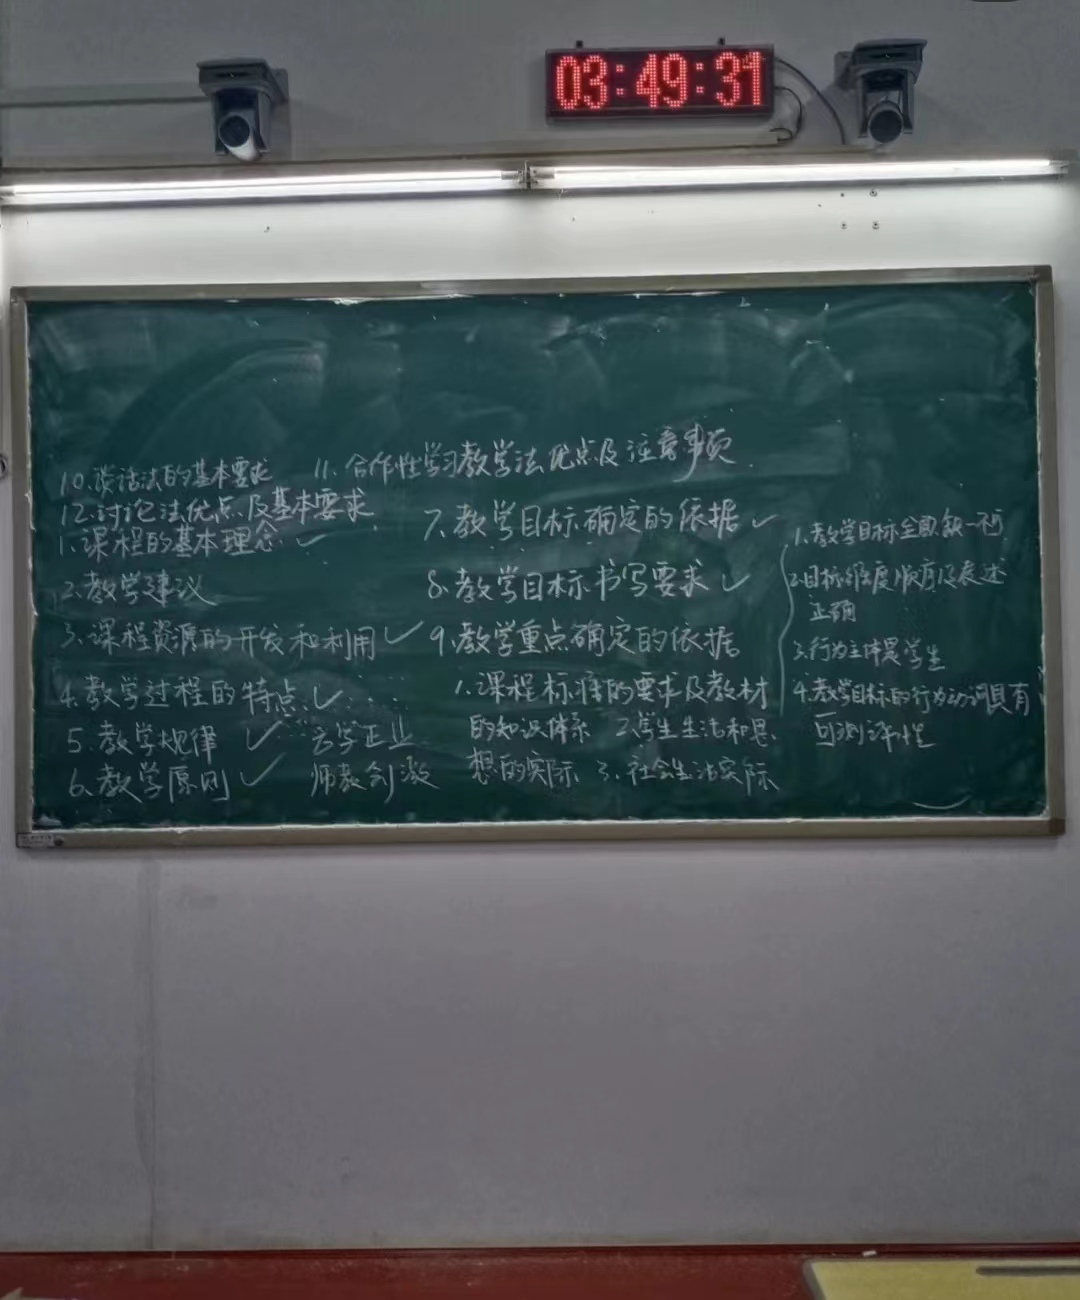 03:49:31
10.谈话法的基本要求
11.合作性学习教学法优点及注意事项
12.讨论法优点及基本要求
1.课程的基本理念 ✓
2.教学建议
3.课程资源的开发和利用 ✓
4.教学过程的特点 ✓
5.教学规律 ✓
6.教学原则 ✓
学正业
师教
7.教学目标确定的依据 ✓
8.教学目标书写要求 ✓
9.教学重点确定的依据
1.课程标准的要求及教材
的知识体系 2.学生生活和思
想的实际 3.社会生活实际
1.教学目标全面缺一不可
2.目标维度顺序及表述
正确
3.行为主体是学生
4.教学目标的行为动词具有
可测评性